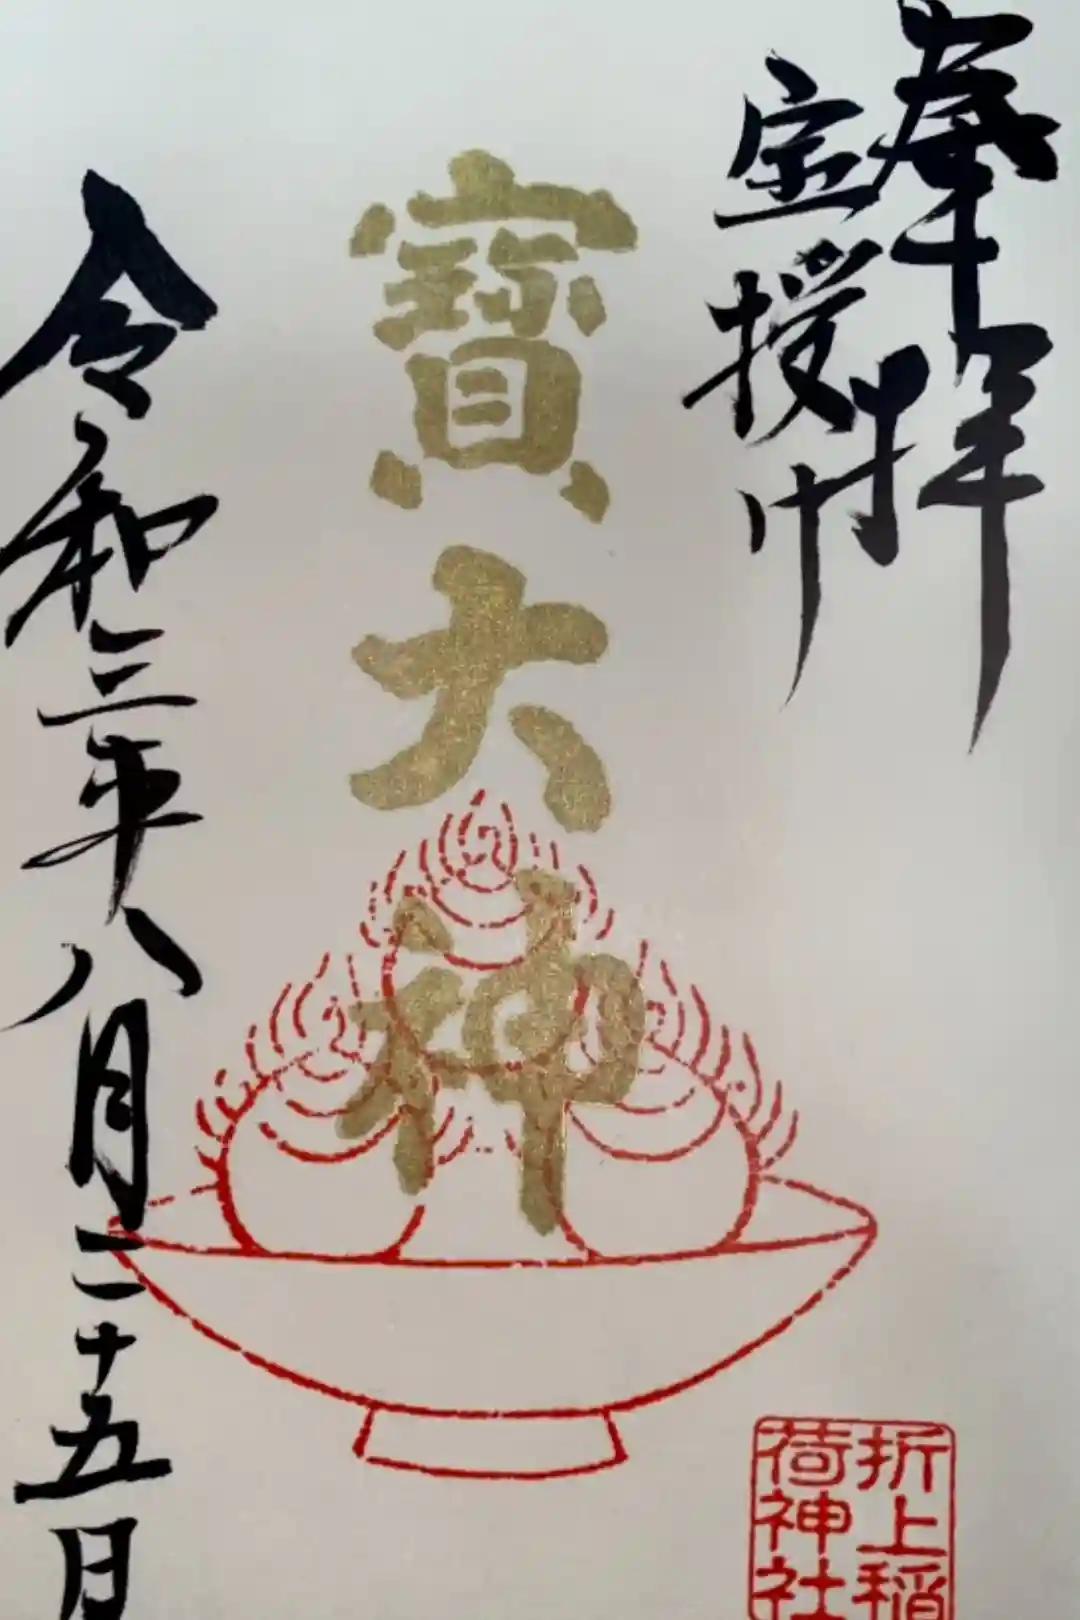 奉拝
宝授け
寳大神
令和三年八月二十五日
折上稲
荷神社